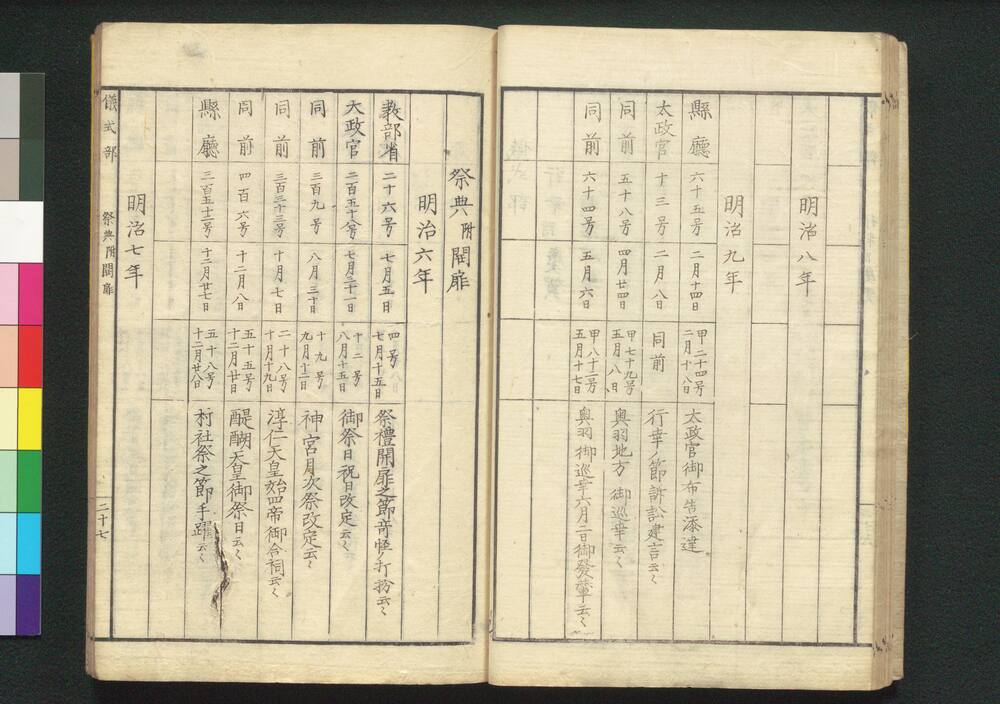 明治八年
明治九年
縣廳 六十五号 二月十四日 甲二十四号 二月十八日 太政官御布告添達
太政官 十三号 二月八日 同前 行幸ノ節訴訟建言云々
同前 五十八号 四月廿四日 甲七十九号 五月八日 奥羽地方 御巡幸云々
同前 六十四号 五月六日 甲八十二号 五月十七日 奥羽御巡幸六月二日御發輦云々
祭典附開扉
明治六年
教部省 二十六号 七月五日 四号 七月十五日 祭禮開扉之節奇怪ノ打扮云々
太政官 二百五十八号 七月三十一日 十二号 八月十五日 御祭日祝日改定云々
同前 三百九号 八月三十日 十九号 九月十二日 神宮月次祭改定云々
同前 三百三十三号 十月七日 二十八号 十月十九日 淳仁天皇始四帝御合祠云々
同前 四百六号 十二月八日 五十五号 十二月廿日 醍醐天皇御祭日云々
縣廳 三百五十二号 十二月廿七日 五十八号 十二月廿八日 村社祭之節手踊云々
明治七年
儀式部 祭典附開扉 二十七